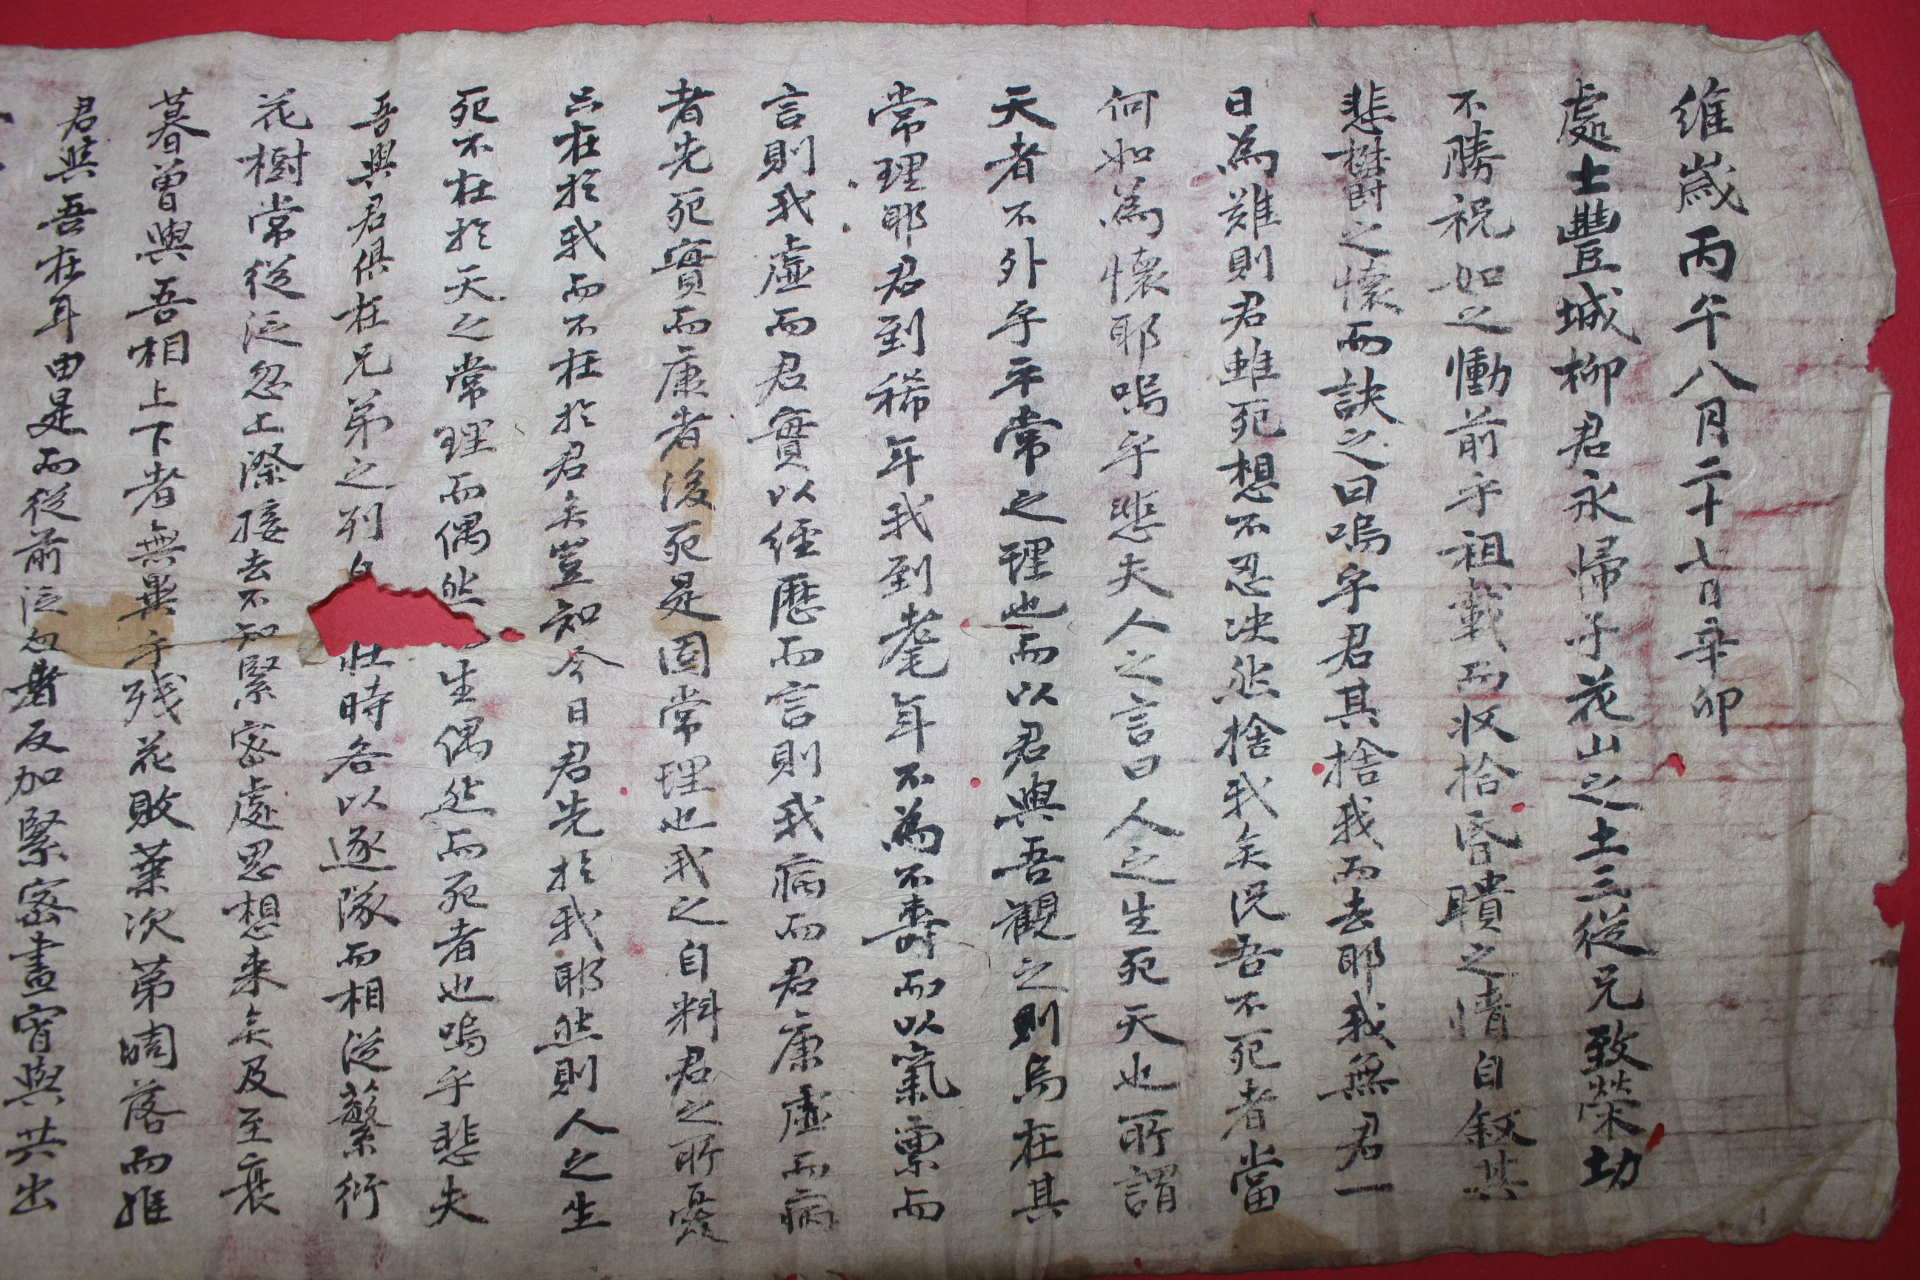 維歲丙午八月二十七日辛卯
處士豐城柳君永歸于花山之土三從兄致榮切
不勝祝如之慟前乎祖載而收拾昏聵之情自叙其
悲欝之懷而訣之曰嗚乎君其捨我而去耶我無君一
日為難則君雖死想不忍決然捨我矣况吾不死者當
何如為懷耶嗚乎悲夫人之言曰人之生死天也所謂
天者不外乎平常之理也而以君與吾觀之則烏在其
常理耶君到稀年我到耄年不為不壽而以氣稟而
言則我虛而君實以經歷而言則我病而君康虛而病
者先死實而康者後死是固常理也我之自料君之所憂
只在於我而不在於君矣豈知今日君先於我耶然則人之生
死不在於天之常理而偶然生偶然而死者也嗚乎悲夫
吾與君俱在兄弟之列壯時各以逐隊而相從蘩衍
花樹常從泛忽上際接去不知緊密處思想來矣及至衰
暮曾與吾相上下者無異乎残花敗葉次第凋落而雖
君與吾在耳由是而從前泛忽者反加緊密晝宵與共出